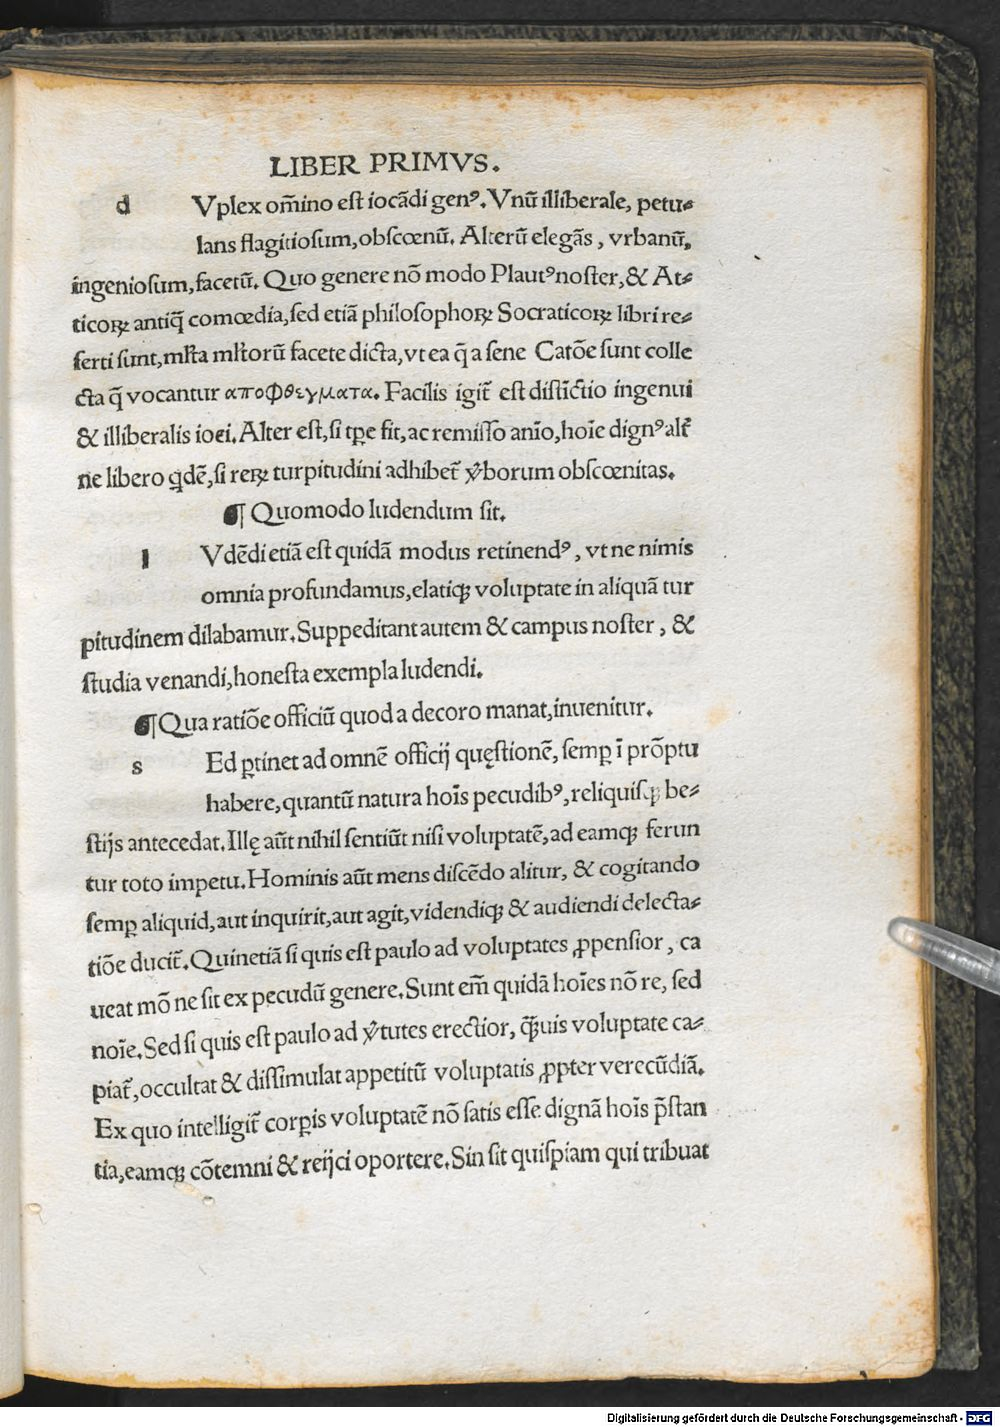 LIBER PRIMVS.
d Vplex om̅ino est iocãdi genꝰ. Vnũ illiberale, petu⸗
lans flagitiosum, obscœnũ. Alterũ elegãs, vrbanũ,
ingeniosum, facetũ. Quo genere nõ modo Plautꝰ noster, & At⸗
ticoꝝ antiq̃ comœdia, sed etiã philosophoꝝ Socraticoꝝ libri re⸗
ferti sunt, ml̃ta ml̃torũ facete dicta, vt ea q̃ a sene Catõe sunt colle
cta q̃ vocantur αποφθεγματα. Facilis igit̃ est distĩctio ingenui
& illiberalis ioci. Alter est, si tꝑe fit, ac remisso anĩo, hoĩe dignꝰ alt̃
ne libero qdẽ, si reꝝ turpitudini adhibet̃ v̾borum obscœnitas.
¶ Quomodo ludendum sit.
l Vdẽdi etiã est quidã modus retinendꝰ, vt ne nimis
omnia profundamus, elatiqꝫ voluptate in aliquã tur
pitudinem dilabamur. Suppeditant autem & campus noster, &
studia venandi, honesta exempla ludendi.
¶ Qua ratiõe officiũ quod a decoro manat, inuenitur.
s Ed ꝑtinet ad omnẽ officij quęstionẽ, semꝑ ĩ prõptu
habere, quantũ natura hoĩs pecudibꝰ, reliquisqꝫ be⸗
stijs antecedat. Illę aũt nihil sentiũt nisi voluptatẽ, ad eamqꝫ ferun
tur toto impetu. Hominis aũt mens discẽdo alitur, & cogitando
semꝑ aliquid, aut inquirit, aut agit, videndiqꝫ & audiendi delecta⸗
tiõe ducit̃. Quinetiã si quis est paulo ad voluptates ꝓpensior, ca
ueat mõ ne sit ex pecudũ genere. Sunt em̃ quidã hoĩes nõ re, sed
noĩe. Sed si quis est paulo ad v̾tutes erectior, q̃uis voluptate ca⸗
piat̃, occultat & dissimulat appetitũ voluptatis ꝓpter verecũdiã.
Ex quo intelligit̃ corꝑis voluptatẽ nõ satis esse dignã hoĩs p̃stan
tia, eamqꝫ cõtemni & reijci oportere. Sin sit quispiam qui tribuat
Digitalisierung gefördert durch die Deutsche Forschungsgemeinschaft - DFG